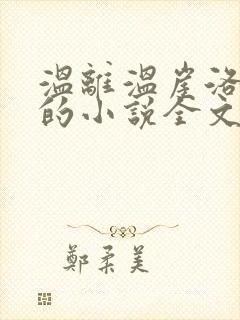 溫離溫崖洛
的小說全文
鄭柔美